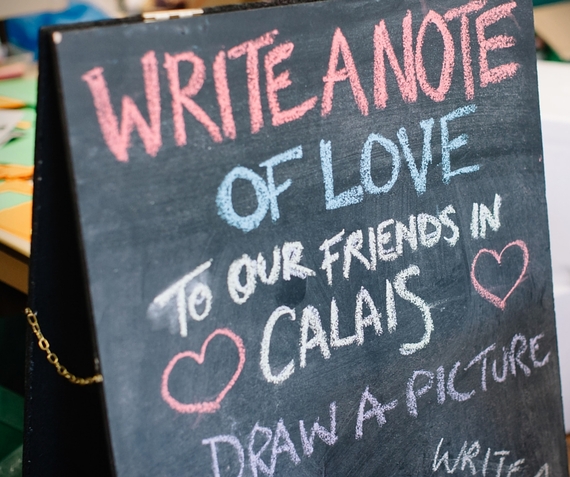 WRITE A NOTE
OF LOVE
TO OUR FRIENDS IN
CALAIS
DRAW A PICTURE
WRITE A